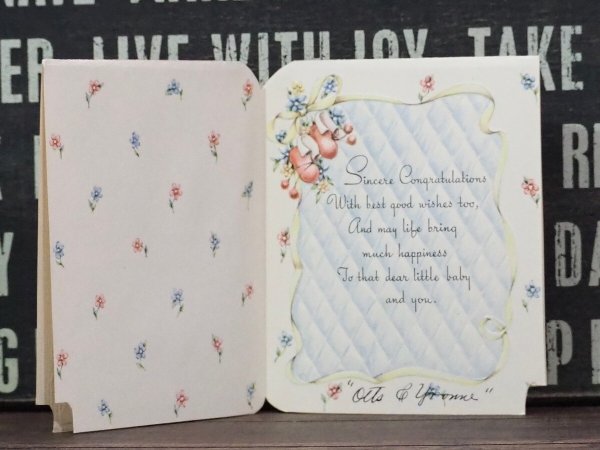 ER, LIVE WITH JOY, TAKE
RI
Y
DA
G
PI
Sincere Congratulations
With best good wishes too,
And may life bring
much happiness
To that dear little baby
and you.
"Otts & Yvonne"